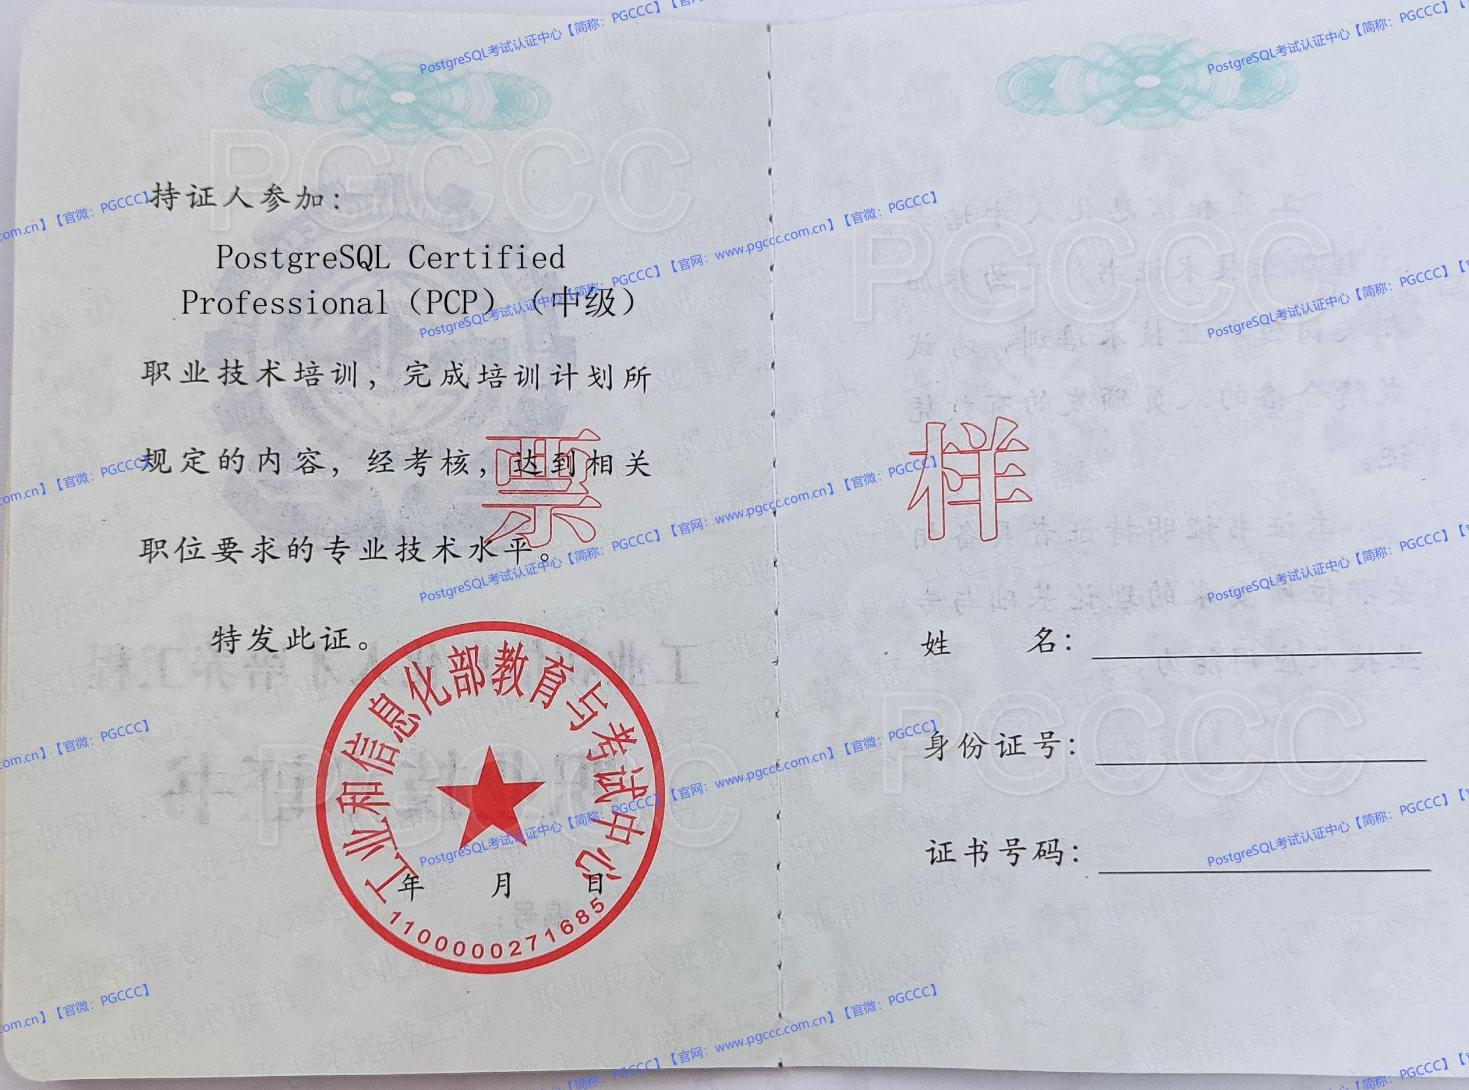 持证人参加：
PostgreSQL Certified
Professional（PCP）（中级）
职业技术培训，完成培训计划所
规定的内容，经考核，达到相关
职位要求的专业技术水平。
特发此证。
工业和信息化部教育与考试中心
年 月 日
1100000271685
票样
姓 名：
身份证号：
证书号码：
PGCCC
PGCCC
PGCCC
PGCCC
PostgreSQL考试认证中心【简称：PGCCC】【官网：www.pgccc.com.cn】【官微：PGCCC】